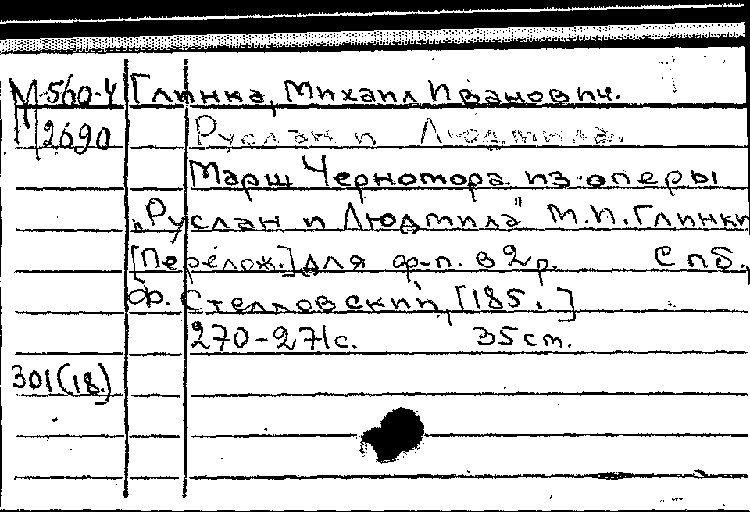 М-560-4 Глинка, Михаил Иванович.
Г/2690 Руслан и Людмила.
Марш Черномора из оперы
„Руслан и Людмила" М.И.Глинки
[Перелож.] для ф-п. в 2 р. Спб.,
Ф. Стелловский, [185. ]
270-271с. 35 cm.
301(18.)